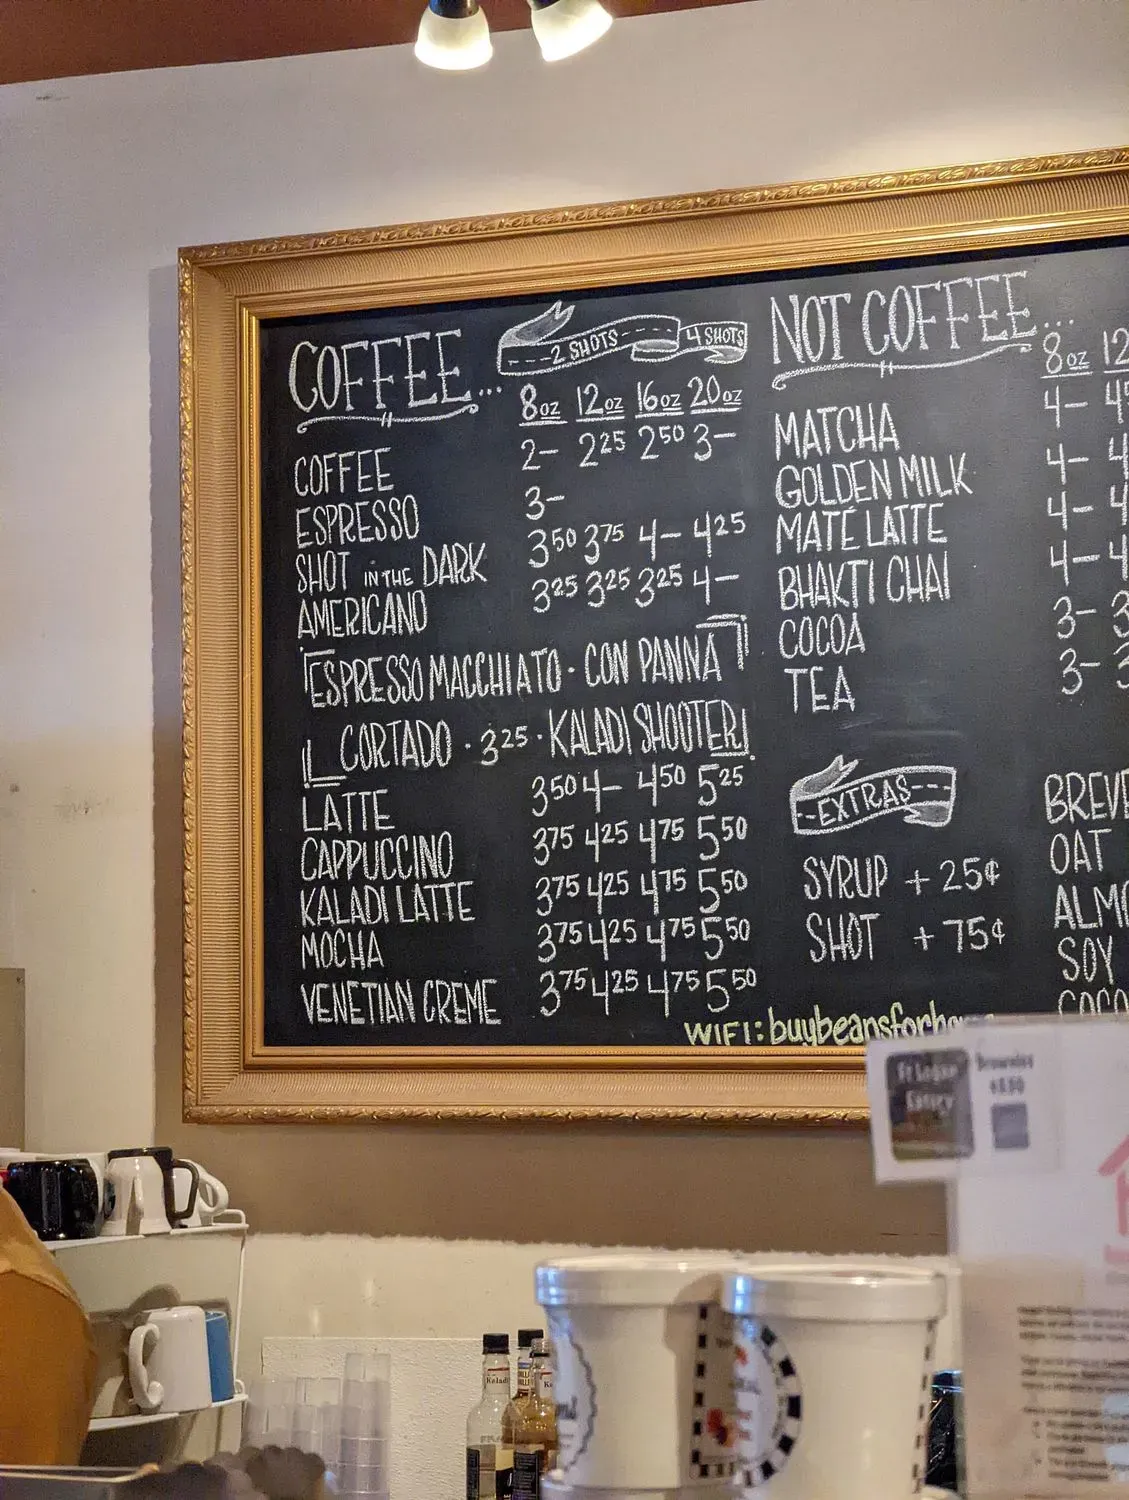 COFFEE...
2 SHOTS 4 SHOTS
8oz 12oz 16oz 20oz
COFFEE 2- 2 25 2 50 3-
ESPRESSO 3-
SHOT IN THE DARK 3 50 3 75 4- 4 25
AMERICANO 3 25 3 25 3 25 4-
ESPRESSO MACCHIATO · CON PANNA
CORTADO · 3 25 · KALADI SHOOTER
LATTE 3 50 4- 4 50 5 25
CAPPUCCINO 3 75 4 25 4 75 5 50
KALADI LATTE 3 75 4 25 4 75 5 50
MOCHA 3 75 4 25 4 75 5 50
VENETIAN CREME 3 75 4 25 4 75 5 50
NOT COFFEE...
8oz 12
MATCHA 4-
GOLDEN MILK 4- 4
MATÉ LATTE 4- 4
BHAKTI CHAI 4- 4
COCOA 3- 3
TEA 3- 3
EXTRAS
SYRUP + 25¢
SHOT + 75¢
BREVE
OAT
ALMO
SOY
COCO
WIFI: buybeansforh
Brownies